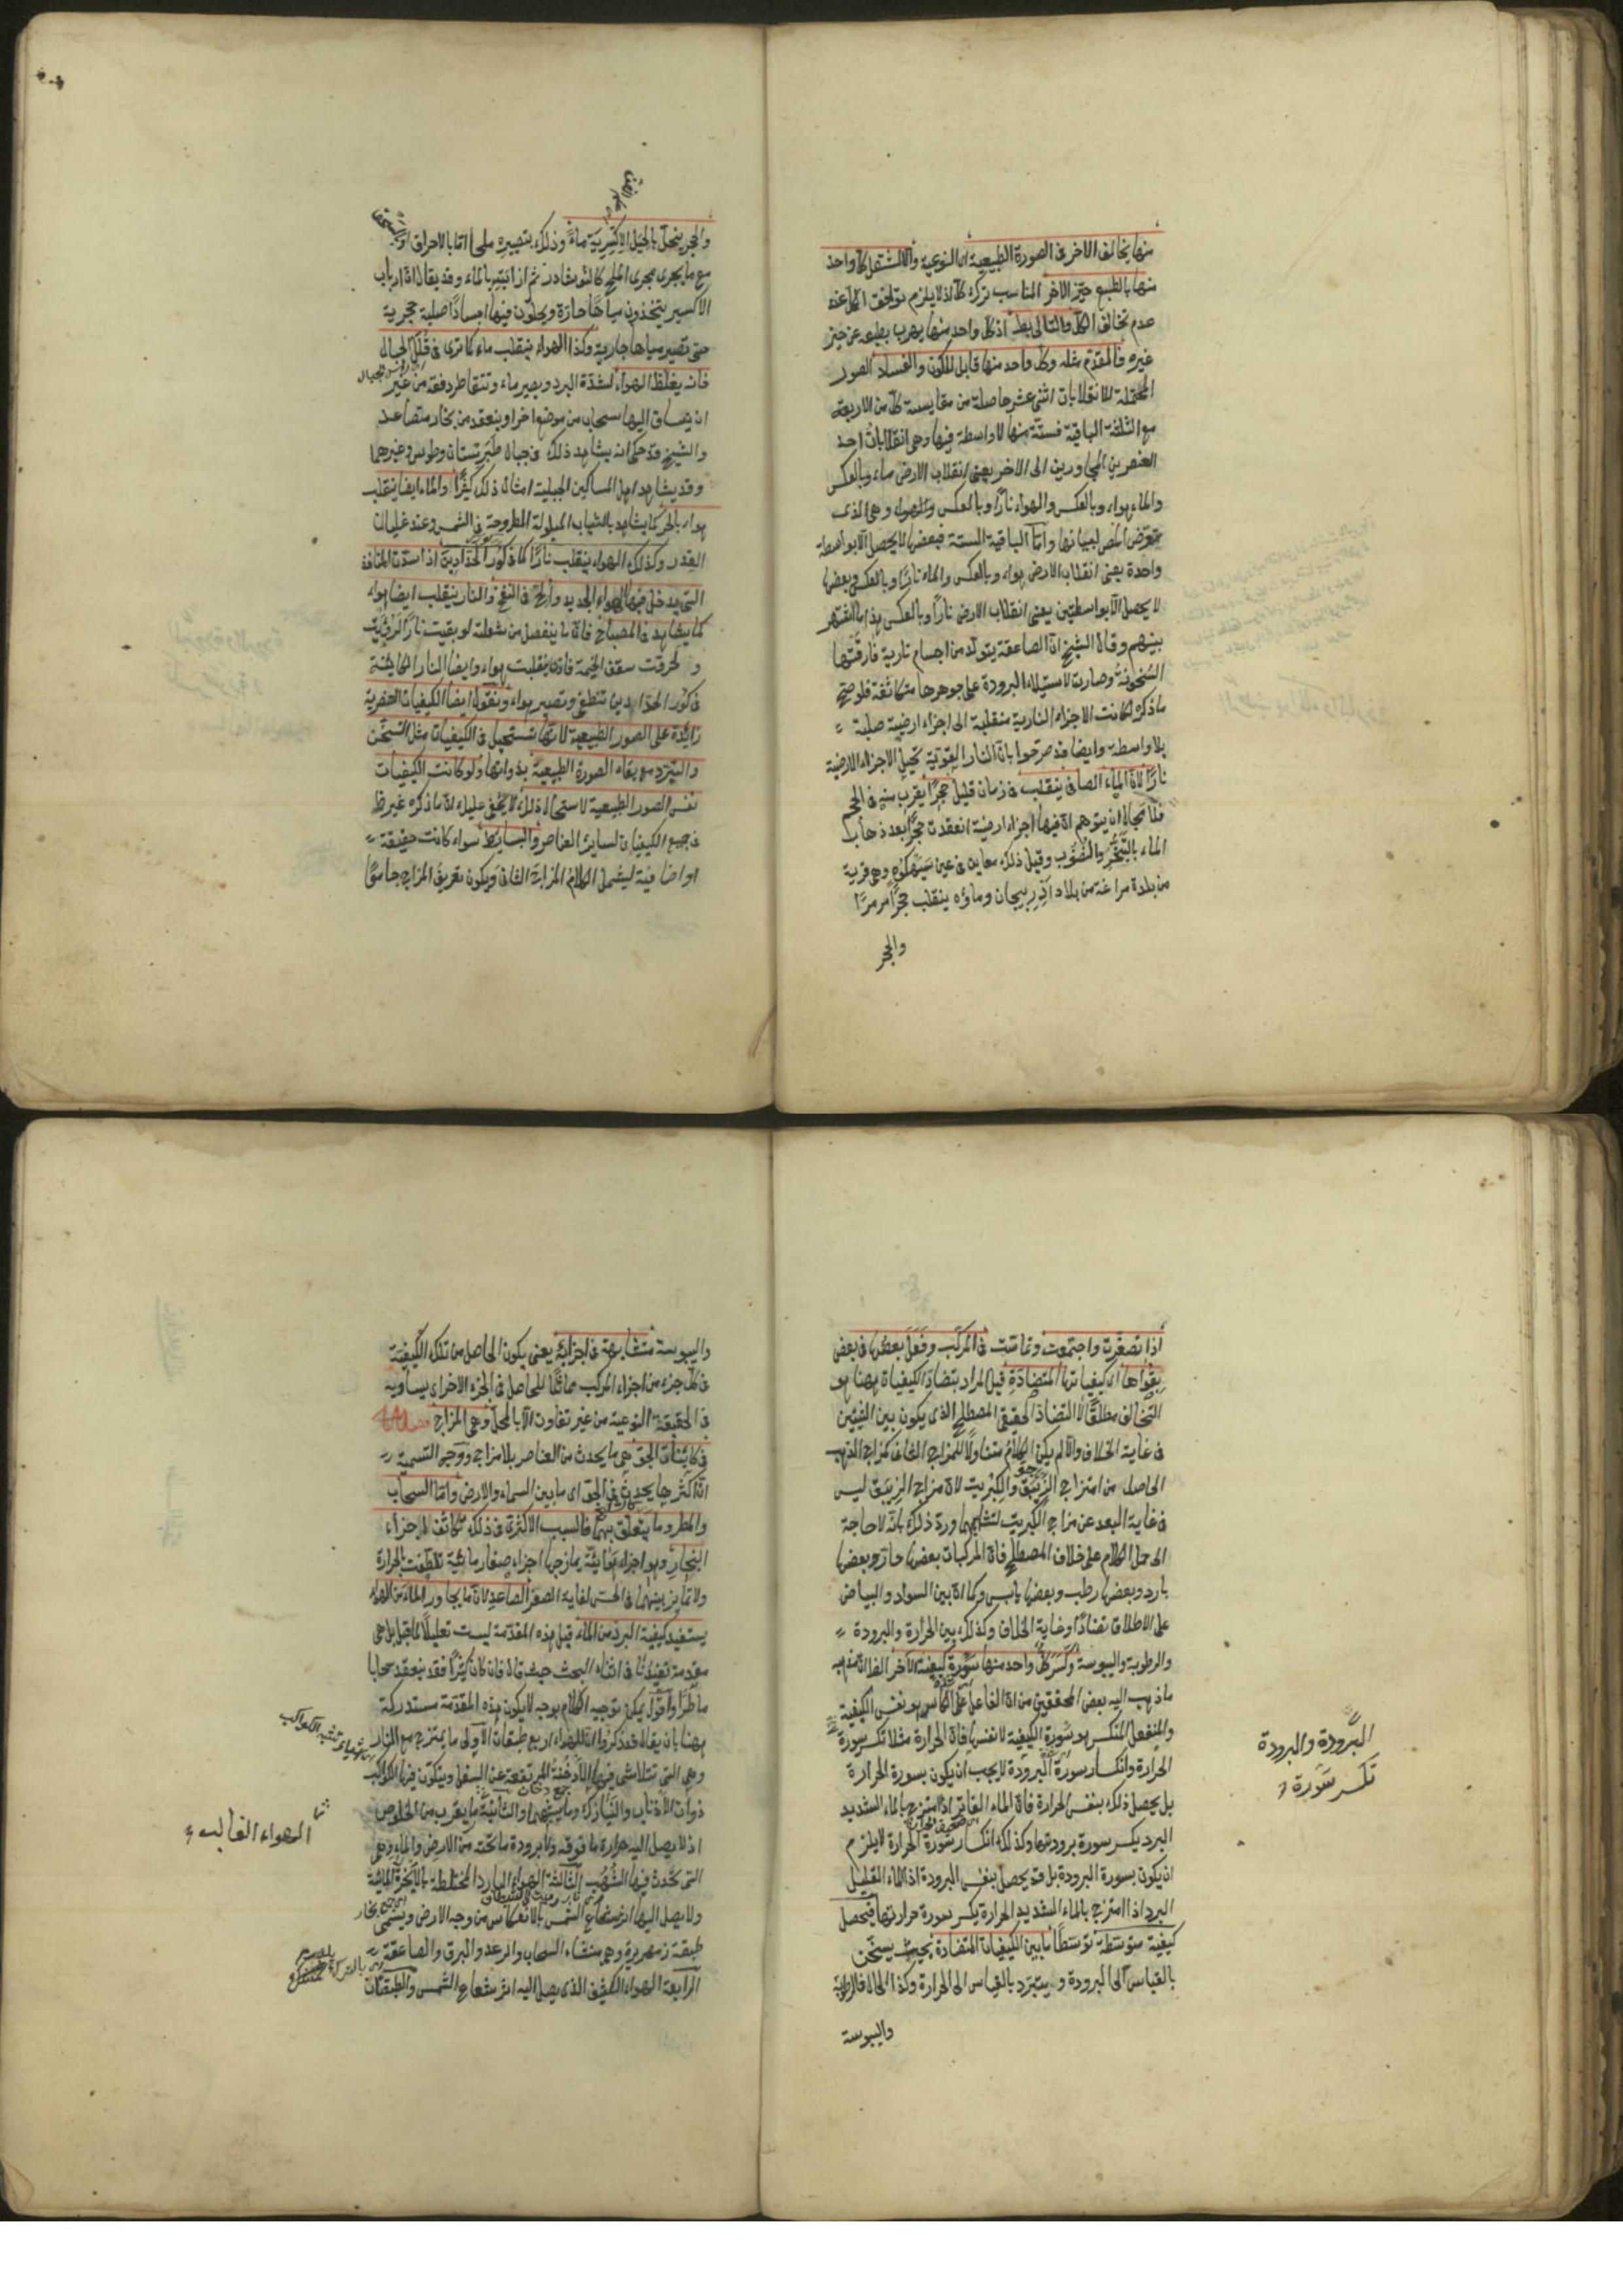 منها يخالف الاخر فى الصورة الطبيعية اى النوعية والا لاشتغل كل واحد
منها بالطبع حيز الاخر المناسب ترك كل اذ لا يلزم توافق الكل عند
عدم تخالف الكل والتالى بط اذ كل واحد منها يهرب بطبعه عن حيز
غيره فالمقدم مثله وكل واحد منها قابل للكون والفساد الصور
المحتملة للانقلابات اثنى عشر حاصلة من مقايسة كل من الاربعة
مع الثلثة الباقية فستة منها لا واسطة فيها وهى انقلابات احد
العنصرين المجاورين الى الاخر يعنى انقلاب الارض ماء وبالعكس
والماء هواء وبالعكس والهواء نارًا وبالعكس وهى الذى
تعرض المص لبيانها واما الباقية الستة فبعضها لا يحصل الا بواسطة
واحدة يعنى انقلاب الارض هواء وبالعكس والماء نارًا وبالعكس وبعضها
لا يحصل الا بواسطتين يعنى انقلاب الارض نارًا وبالعكس هذا ما اشتهر
بينهم وقال الشيخ ان الصاعقة يتولد من اجسام نارية فارقتها
السخونة وصارت لاستيلاء البرودة على جوهرها متكاثفة فلو صح
ما ذكره لكانت الاجزاء النارية منقلبة الى اجزاء ارضية صلبة
بلا واسطة وايضا قد صرحوا بان النار القوية تحيل الاجزاء الارضية
نارًا لان الماء الصافى ينقلب فى زمان قليل حجرًا يقرب منه فى الحجم
فلا مجال لان يتوهم ان فيها اجزاء ارضية انعقدت حجرًا بعد ذهاب
الماء بالتبخر والنضوب وقيل ذلك معاين فى عين سيهكوه وهى قرية
من بلدة مراغة من بلاد اذربيجان وماؤه ينقلب حجرًا مرمرًا
والحجر
والحجر ينحل بالحيل الاكسيرية ماء وذلك بتصييره ملحا اما بالاحراق او
مع ما يجرى مجرى الملح كالنوشادر ثم اذابته بالماء وقد يقال ان ارباب
الاكسير يتخذون مياها حارة ويحلون فيها اجسادًا صلبة حجرية
حتى تصير مياها جارية وكذا الهواء ينقلب ماء كما ترى فى قلل الجبال
فانه يغلظ الهواء لشدة البرد ويصير ماء وتتقاطر دفعة من غير
ان ينساق اليها سحاب من موضع اخر او ينعقد من بخار متصاعد
والشيخ قد حكى انه يشاهد ذلك فى جبال طبرستان وطوس وغيرهما
وقد يشاهد اهل المساكن الجبلية امثال ذلك كثيرًا والماء ايضا ينقلب
هواء بالحر كما يشاهد بالثياب المبلولة المطروحة فى الشمس وعند غليان
القدر وكذلك الهواء ينقلب نارًا كما فى كور الحدادين اذا سدت المنافذ
التى يدخل فيها الهواء الجديد والح فى النفخ والنار ينقلب ايضا هواء
كما يشاهد فى المصباح فان ما ينفصل من شعلته لو بقيت نارًا لرؤيت
ولحرقت سقف الخيمة فاذن ينقلبت هواء وايضا النار الكائنة
فى كور الحدادين تنطفى وتصير هواء ونقول ايضا الكيفيات العنصرية
زائدة على الصور الطبيعية لانها تستحيل فى الكيفيات مثل التسخن
والتبرد مع بقاء الصورة الطبيعية بذواتها ولو كانت الكيفيات
نفس الصور الطبيعية لاستحال ذلك لا يخفى عليك ان ما ذكره غير ظ
فى جميع الكيفيات لسائر العناصر والبسايط سواء كانت حقيقة
او اضافية ليشمل الكلام المزاج الثانى ويكون تعريف المزاج جامعًا
اذا تصغرت واجتمعت وتماست فى المركب وفعل بعضها فى بعض
بقواها اى كيفياتها المتضادة قيل المراد بتضاد الكيفيات ههنا هو
التخالف مطلقًا لا التضاد الحقيقى المصطلح الذى يكون بين الشيئين
فى غاية الخلاف والا لم يكن الكلام متناولًا للمزاج الثانى كمزاج الذهب
الحاصل من امتزاج الزيبق والكبريت لان مزاج الزيبق ليس
فى غاية البعد عن مزاج الكبريت لتشابههما ورد ذلك بانه لا حاجة
الى حمل الكلام على خلاف المصطلح فان المركبات بعضها حار وبعضها
بارد وبعضها رطب وبعضها يابس وكما ان بين السواد والبياض
على الاطلاق تضادًا وغاية الخلاف وكذلك بين الحرارة والبرودة
والرطوبة واليبوسة وكسر كل واحد منها سورة كيفية الاخر
ما ذهب اليه بعض المحققين من ان الفاعل اى الكاسر هو نفس الكيفية
والمنفعل المنكسر هو سورة الكيفية لا نفسها فان الحرارة مثلا تكسر سورة
الحرارة وانكسار سورة البرودة لا يجب ان يكون بسورة الحرارة
بل يحصل ذلك بنفس الحرارة فان الماء الفاتر اذا امتزج بالماء الشديد
البرد يكسر سورة برودتها وكذلك انكسار سورة الحرارة لا يلزم
ان يكون بسورة البرودة بل قد يحصل بنفس البرودة اذ الماء القليل
البرد اذا امتزج بالماء الشديد الحرارة يكسر سورة حرارتها فيحصل
كيفية متوسطة توسطًا ما بين الكيفيات المتضادة بحيث يستسخن
بالقياس الى البرودة ويستبرد بالقياس الى الحرارة وكذا الحال فى الرطوبة
واليبوسة
البرودة والبرودة
تكسر سورة
واليبوسة متشابهة فى اجزائه يعنى يكون الحاصل من تلك الكيفية
فى كل جزء من اجزاء المركب مماثلًا للحاصل فى الجزء الاخر اى يساويه
فى الحقيقة النوعية من غير تفاوت الا بالمحل وهى المزاج فصل
فى كائنات الجو هى ما يحدث من العناصر بلا مزاج ووجه التسمية
ان اكثرها يحدث فى الجو اى ما بين السماء والارض واما السحاب
والمطر وما يتعلق بهما فالسبب الاكثرى فى ذلك تكاثف اجزاء
البخار وهو اجزاء هوائية يمازجها اجزاء صغار مائية تلطفت بالحرارة
ولا تمايز بينهما فى الحس لغاية الصغر الصاعد لان ما يجاور الماء من الهواء
يستفيد كيفية البرد من الماء قيل هذه المقدمة ليست تعليلًا لما قبل بل هى
مقدمة تفيدنا فى اثناء البحث حيث قال فان كان كثيرًا فقد ينعقد سحابا
ماطرًا واقول يمكن توجيه الكلام بوجه لا يكون هذه المقدمة مستدركة
ههنا بان يقال قد ذكروا ان للهواء اربع طبقات الاولى ما يمتزج مع النار
وهى التى تتلاشى فيها الادخنة المرتفعة عن السفل ويتكون فيها الكواكب
ذوات الاذناب والنيازك وما يشبهها والثانية ما يقرب من الخلوص
اذ لا يصل اليه حرارة ما فوقه ولا برودة ما تحته من الارض والماء وهى
التى تحدث فيها الشهب الثالثة الهواء البارد المختلطة بالابخرة المائية
ولا يصل اليها اثر شعاع الشمس بالانعكاس من وجه الارض ويسمى
طبقة زمهريرة وهى منشاء السحاب والرعد والبرق والصاعقة
الرابعة الهواء الكثيف الذى يصل اليه اثر شعاع الشمس والطبقتان
الهواء الغالب